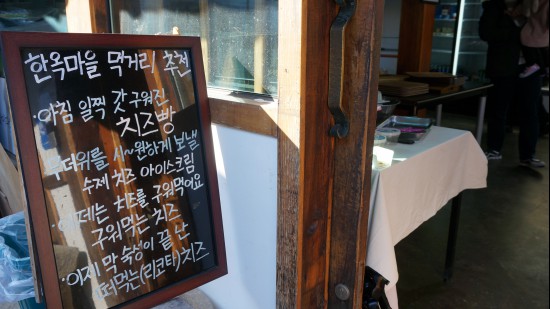 한옥마을 먹거리 추천
· 아침 일찍 갓 구워진
치즈빵
무더위를 시~원하게 보낼
수제 치즈 아이스크림
· 이제는 치즈를 구워먹어요
구워먹는 치즈
· 이제 막 숙성이 끝난
떠먹는(리코타)치즈